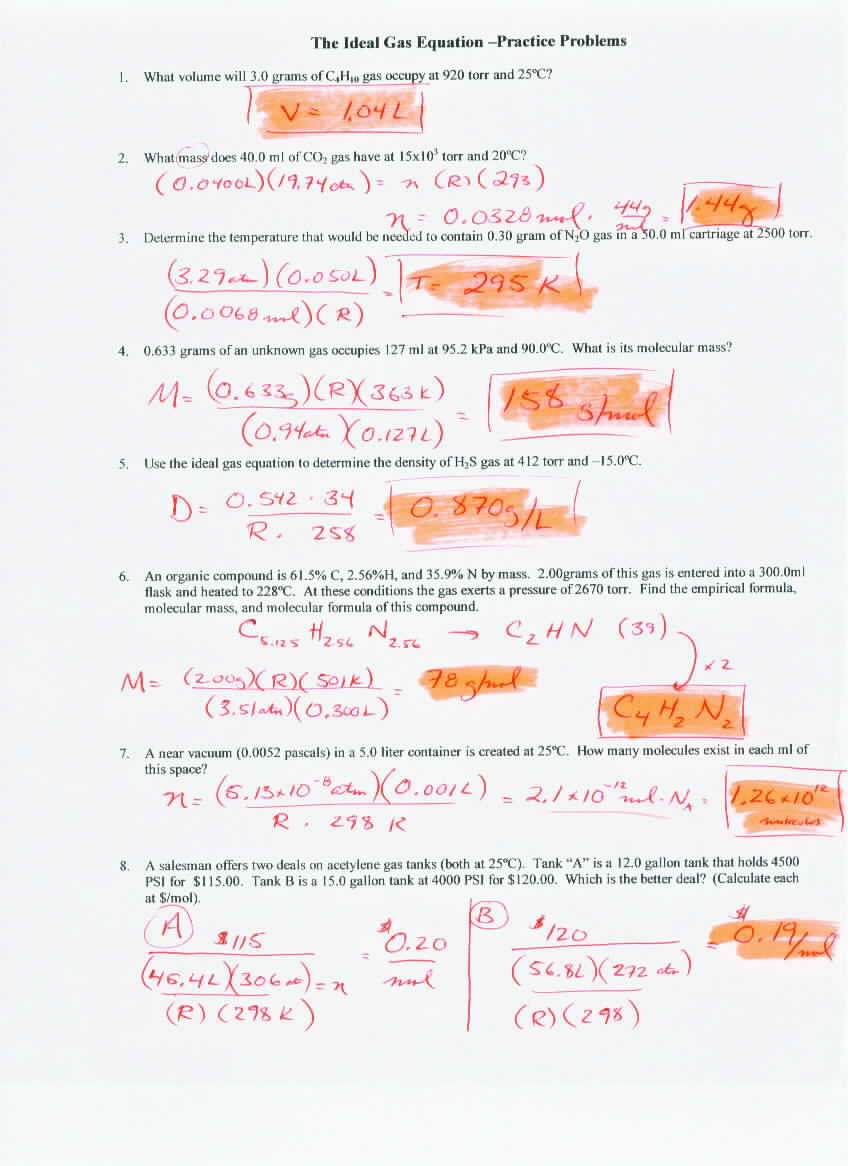 The Ideal Gas Equation –Practice Problems
1. What volume will 3.0 grams of C₄H₁₀ gas occupy at 920 torr and 25ºC?
V = 1.04 L
2. What mass does 40.0 ml of CO₂ gas have at 15x10³ torr and 20ºC?
(0.0400L)(19.74 atm) = n (R)(293)
n = 0.0328 mol · 44g/mol = 1.44g
3. Determine the temperature that would be needed to contain 0.30 gram of N₂O gas in a 50.0 ml cartriage at 2500 torr.
(3.29 atm)(0.050L) = T = 295 K
(0.0068 mol)(R)
4. 0.633 grams of an unknown gas occupies 127 ml at 95.2 kPa and 90.0ºC. What is its molecular mass?
M = (0.633g)(R)(363K) = 158 g/mol
(0.94 atm)(0.127L)
5. Use the ideal gas equation to determine the density of H₂S gas at 412 torr and –15.0ºC.
D = 0.542 · 34 = 0.870g/L
R · 258
6. An organic compound is 61.5% C, 2.56%H, and 35.9% N by mass. 2.00grams of this gas is entered into a 300.0ml
flask and heated to 228ºC. At these conditions the gas exerts a pressure of 2670 torr. Find the empirical formula,
molecular mass, and molecular formula of this compound.
C₅.₁₂₅ H₂.₅₆ N₂.₅₆ → C₂HN (39)
x 2
M = (2.00g)(R)(501K) = 78 g/mol
(3.51atm)(0.300L)
C₄ H₂ N₂
7. A near vacuum (0.0052 pascals) in a 5.0 liter container is created at 25ºC. How many molecules exist in each ml of
this space?
n = (5.13x10⁻⁸ atm)(0.001L) = 2.1x10⁻¹² mol · Nₐ = 1.26x10¹²
R · 298 K molecules
8. A salesman offers two deals on acetylene gas tanks (both at 25ºC). Tank “A” is a 12.0 gallon tank that holds 4500
PSI for $115.00. Tank B is a 15.0 gallon tank at 4000 PSI for $120.00. Which is the better deal? (Calculate each
at $/mol).
A
$115 = $0.20
(45.4L)(306 atm) = n mol
(R)(298 K)
B
$120 = $0.19/mol
(56.8L)(272 atm)
(R)(298)